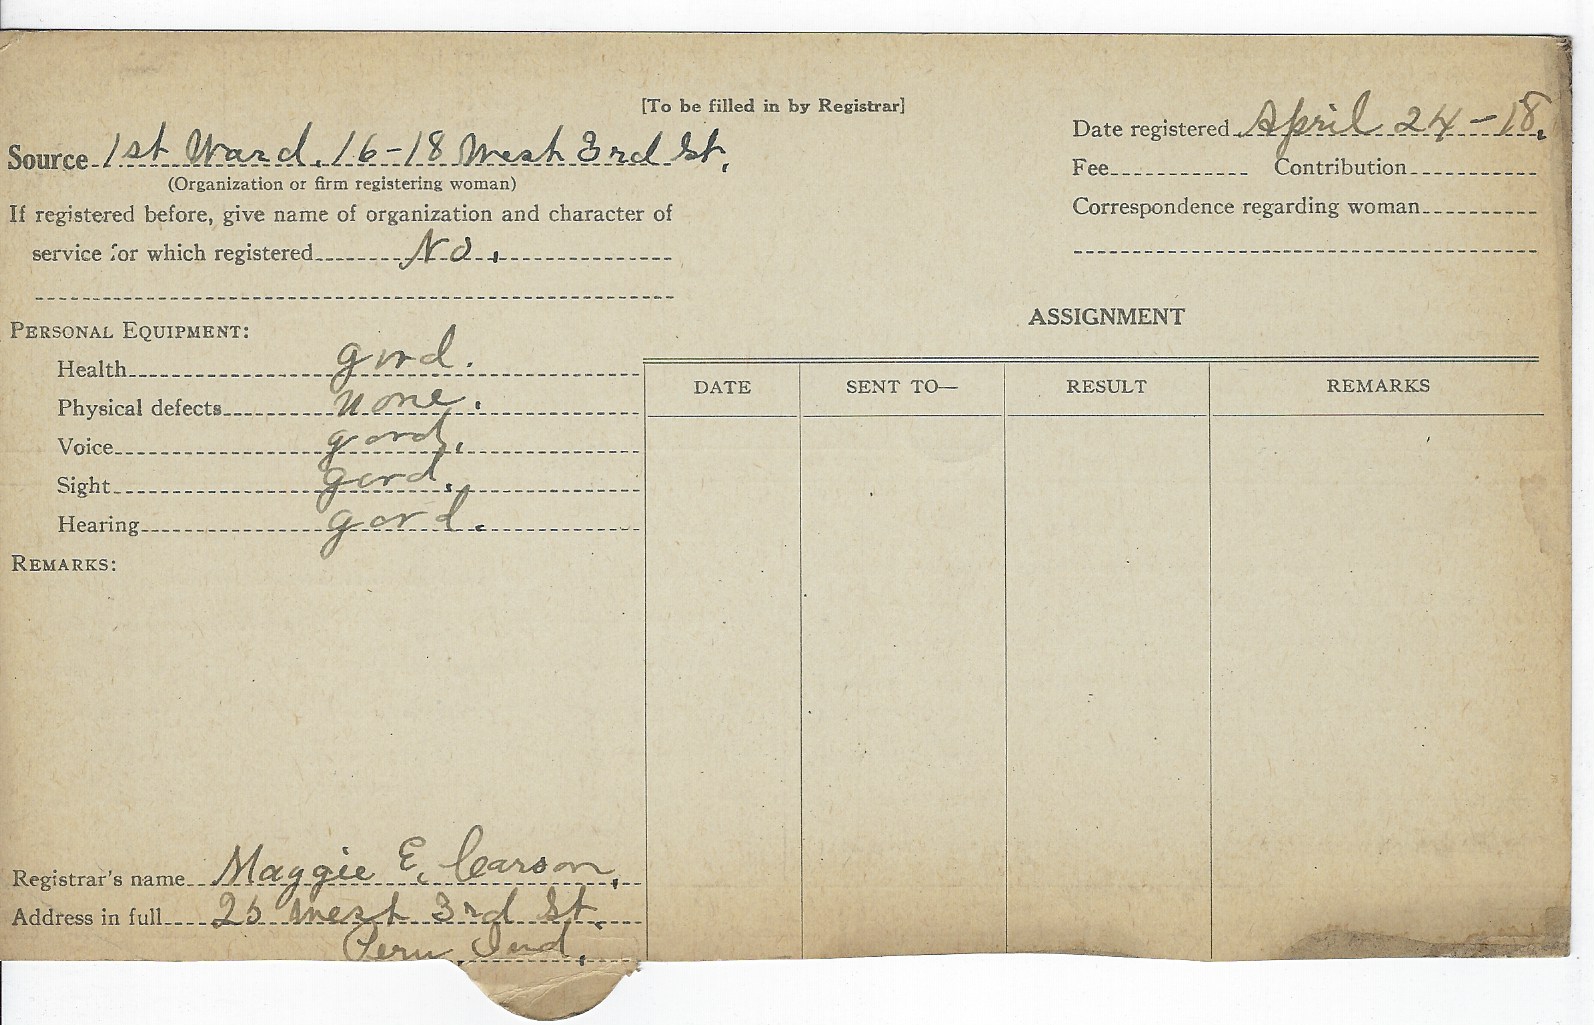 [To be filled in by Registrar]
Source 1st Ward. 16-18 West 3rd St.
(Organization or firm registering woman)
If registered before, give name of organization and character of
service for which registered No.
Date registered April 24-18.
Fee Contribution
Correspondence regarding woman
PERSONAL EQUIPMENT:
Health good.
Physical defects none.
Voice good.
Sight good.
Hearing good.
REMARKS:
ASSIGNMENT
DATE SENT TO— RESULT REMARKS
Registrar's name Maggie E. Carson.
Address in full 25 West 3rd St.
Peru, Ind.